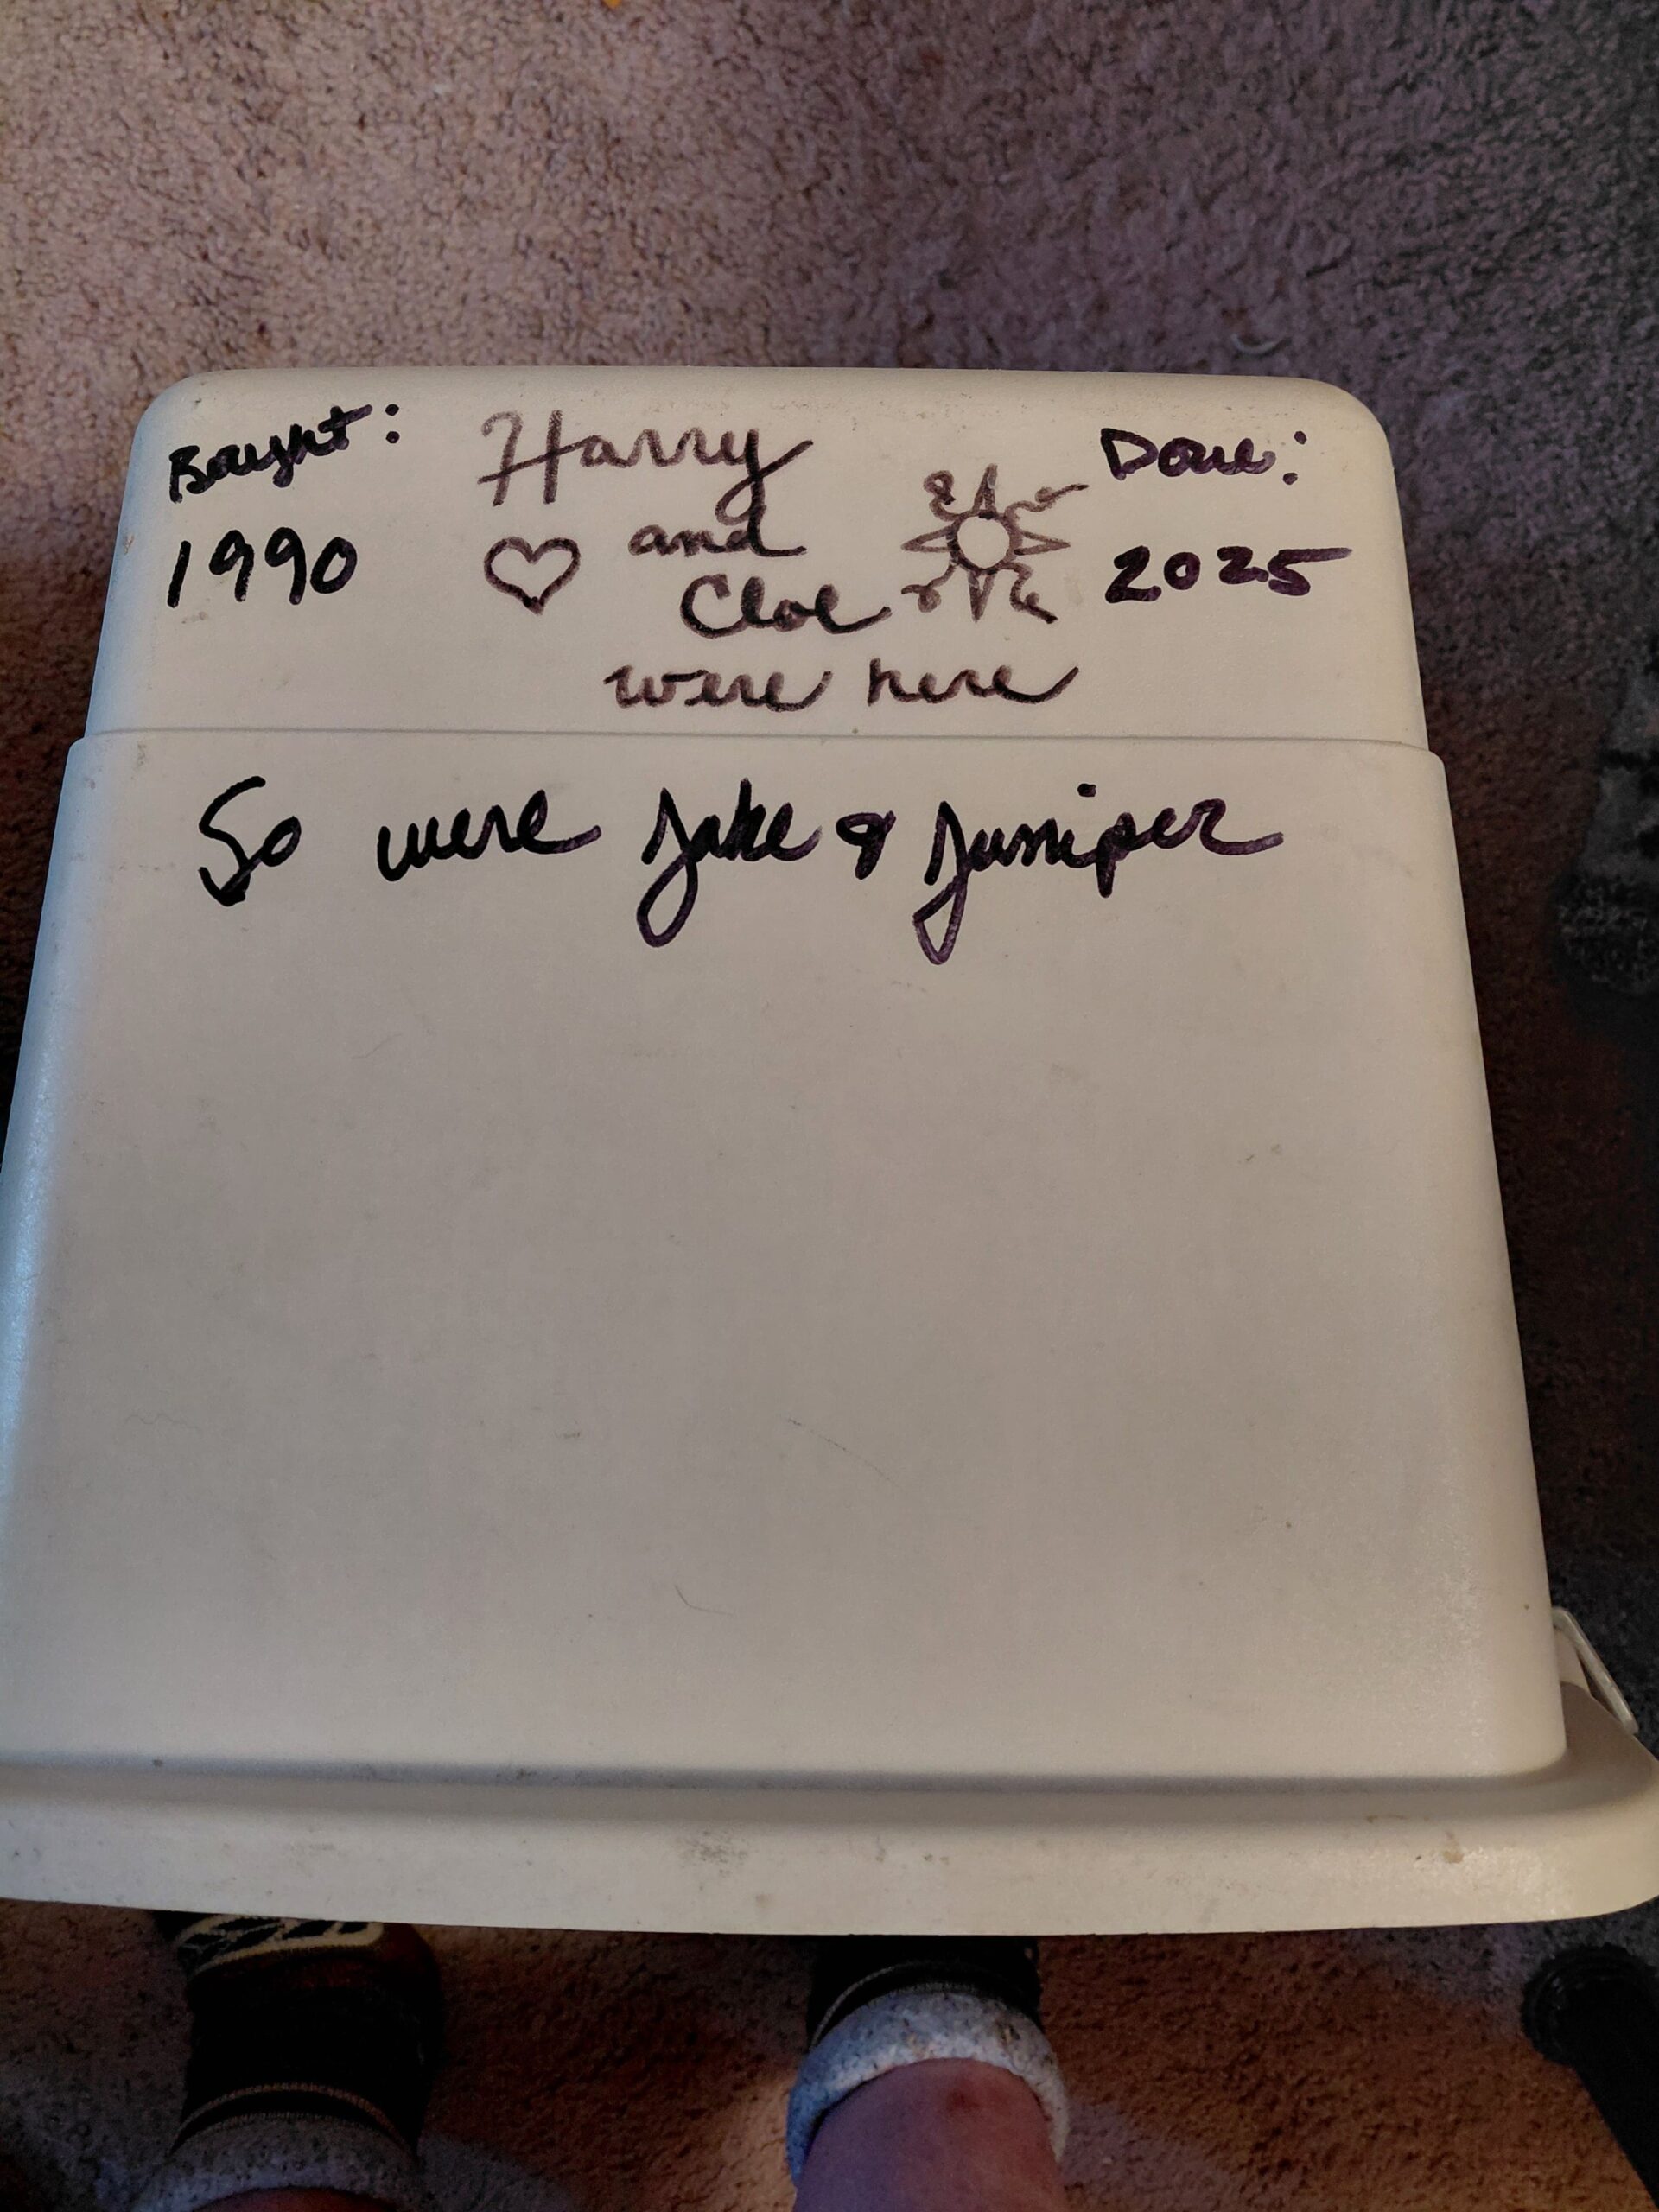 Bought:
1990
Harry
and
Cloe
were here
Done:
2025
So were Jake & Juniper